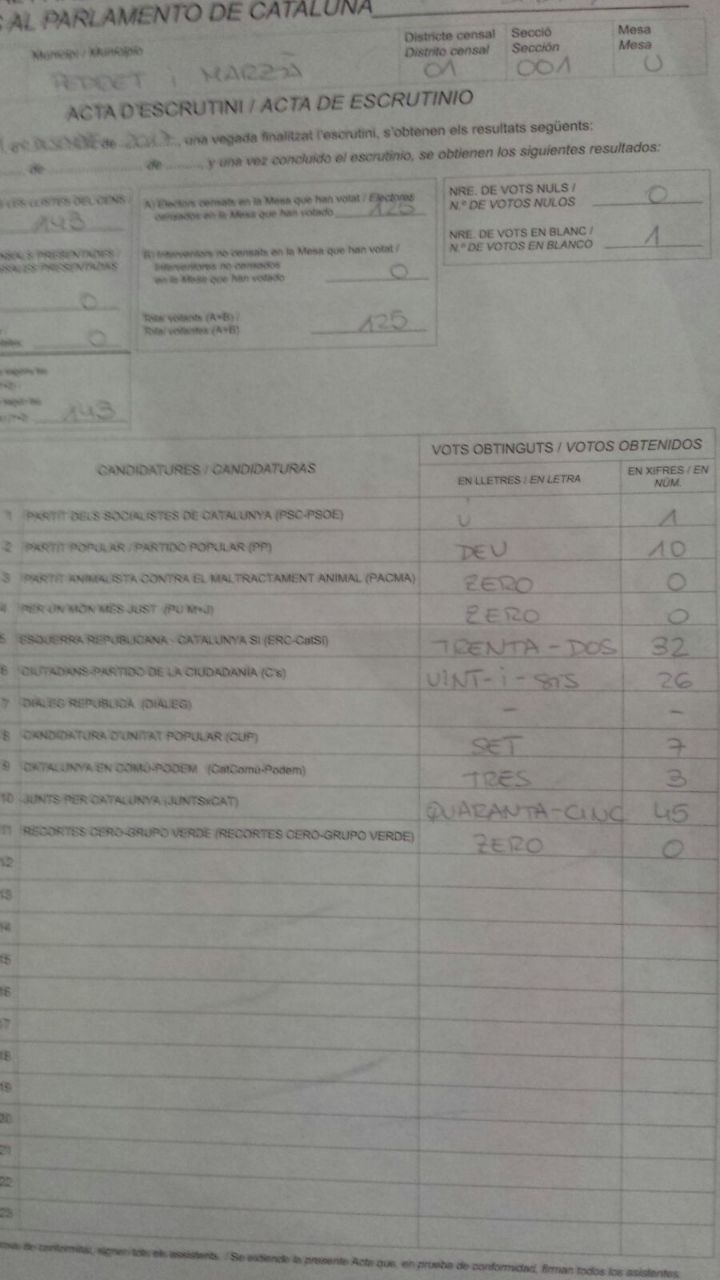 AL PARLAMENTO DE CATALUÑA
Municipi / Municipio
Districte censal
Distrito censal
Secció
Sección
Mesa
Mesa
PEDRET i MARZÀ
01
001
U
ACTA D'ESCRUTINI / ACTA DE ESCRUTINIO
de, una vegada finalitzat l'escrutini, s'obtenen els resultats següents:
de de, y una vez concluido el escrutinio, se obtienen los siguientes resultados:
LES LLISTES DEL CENS /
143
PRESENTADES /
PRESENTADAS
0
0
143
A) Electors censats en la Mesa que han votat / Electores
censados en la Mesa que han votado 125
B) Interventors no censats en la Mesa que han votat /
Interventores no censados
en la Mesa que han votado 0
Total votants (A+B) /
Total votantes (A+B) 125
NRE. DE VOTS NULS /
N.º DE VOTOS NULOS 0
NRE. DE VOTS EN BLANC /
N.º DE VOTOS EN BLANCO 1
CANDIDATURES / CANDIDATURAS
VOTS OBTINGUTS / VOTOS OBTENIDOS
EN LLETRES / EN LETRA
EN XIFRES / EN
NÚM.
1 PARTIT DELS SOCIALISTES DE CATALUNYA (PSC-PSOE) U 1
2 PARTIT POPULAR / PARTIDO POPULAR (PP) DEU 10
3 PARTIT ANIMALISTA CONTRA EL MALTRACTAMENT ANIMAL (PACMA) ZERO 0
4 PER UN MÓN MÉS JUST (PUM+J) ZERO 0
5 ESQUERRA REPUBLICANA - CATALUNYA SÍ (ERC-CatSÍ) TRENTA-DOS 32
6 CIUTADANS-PARTIDO DE LA CIUDADANÍA (C's) VINT-i-SIS 26
7 DIÀLEG REPÚBLICA (DIÀLEG) - -
8 CANDIDATURA D'UNITAT POPULAR (CUP) SET 7
9 CATALUNYA EN COMÚ-PODEM (CatComú-Podem) TRES 3
10 JUNTS PER CATALUNYA (JUNTSxCAT) QUARANTA-CINC 45
11 RECORTES CERO-GRUPO VERDE (RECORTES CERO-GRUPO VERDE) ZERO 0
12
13
14
15
16
17
18
19
20
21
22
23
de conformitat, signen tots els assistents. / Se extiende la presente Acta que, en prueba de conformidad, firman todos los asistentes.